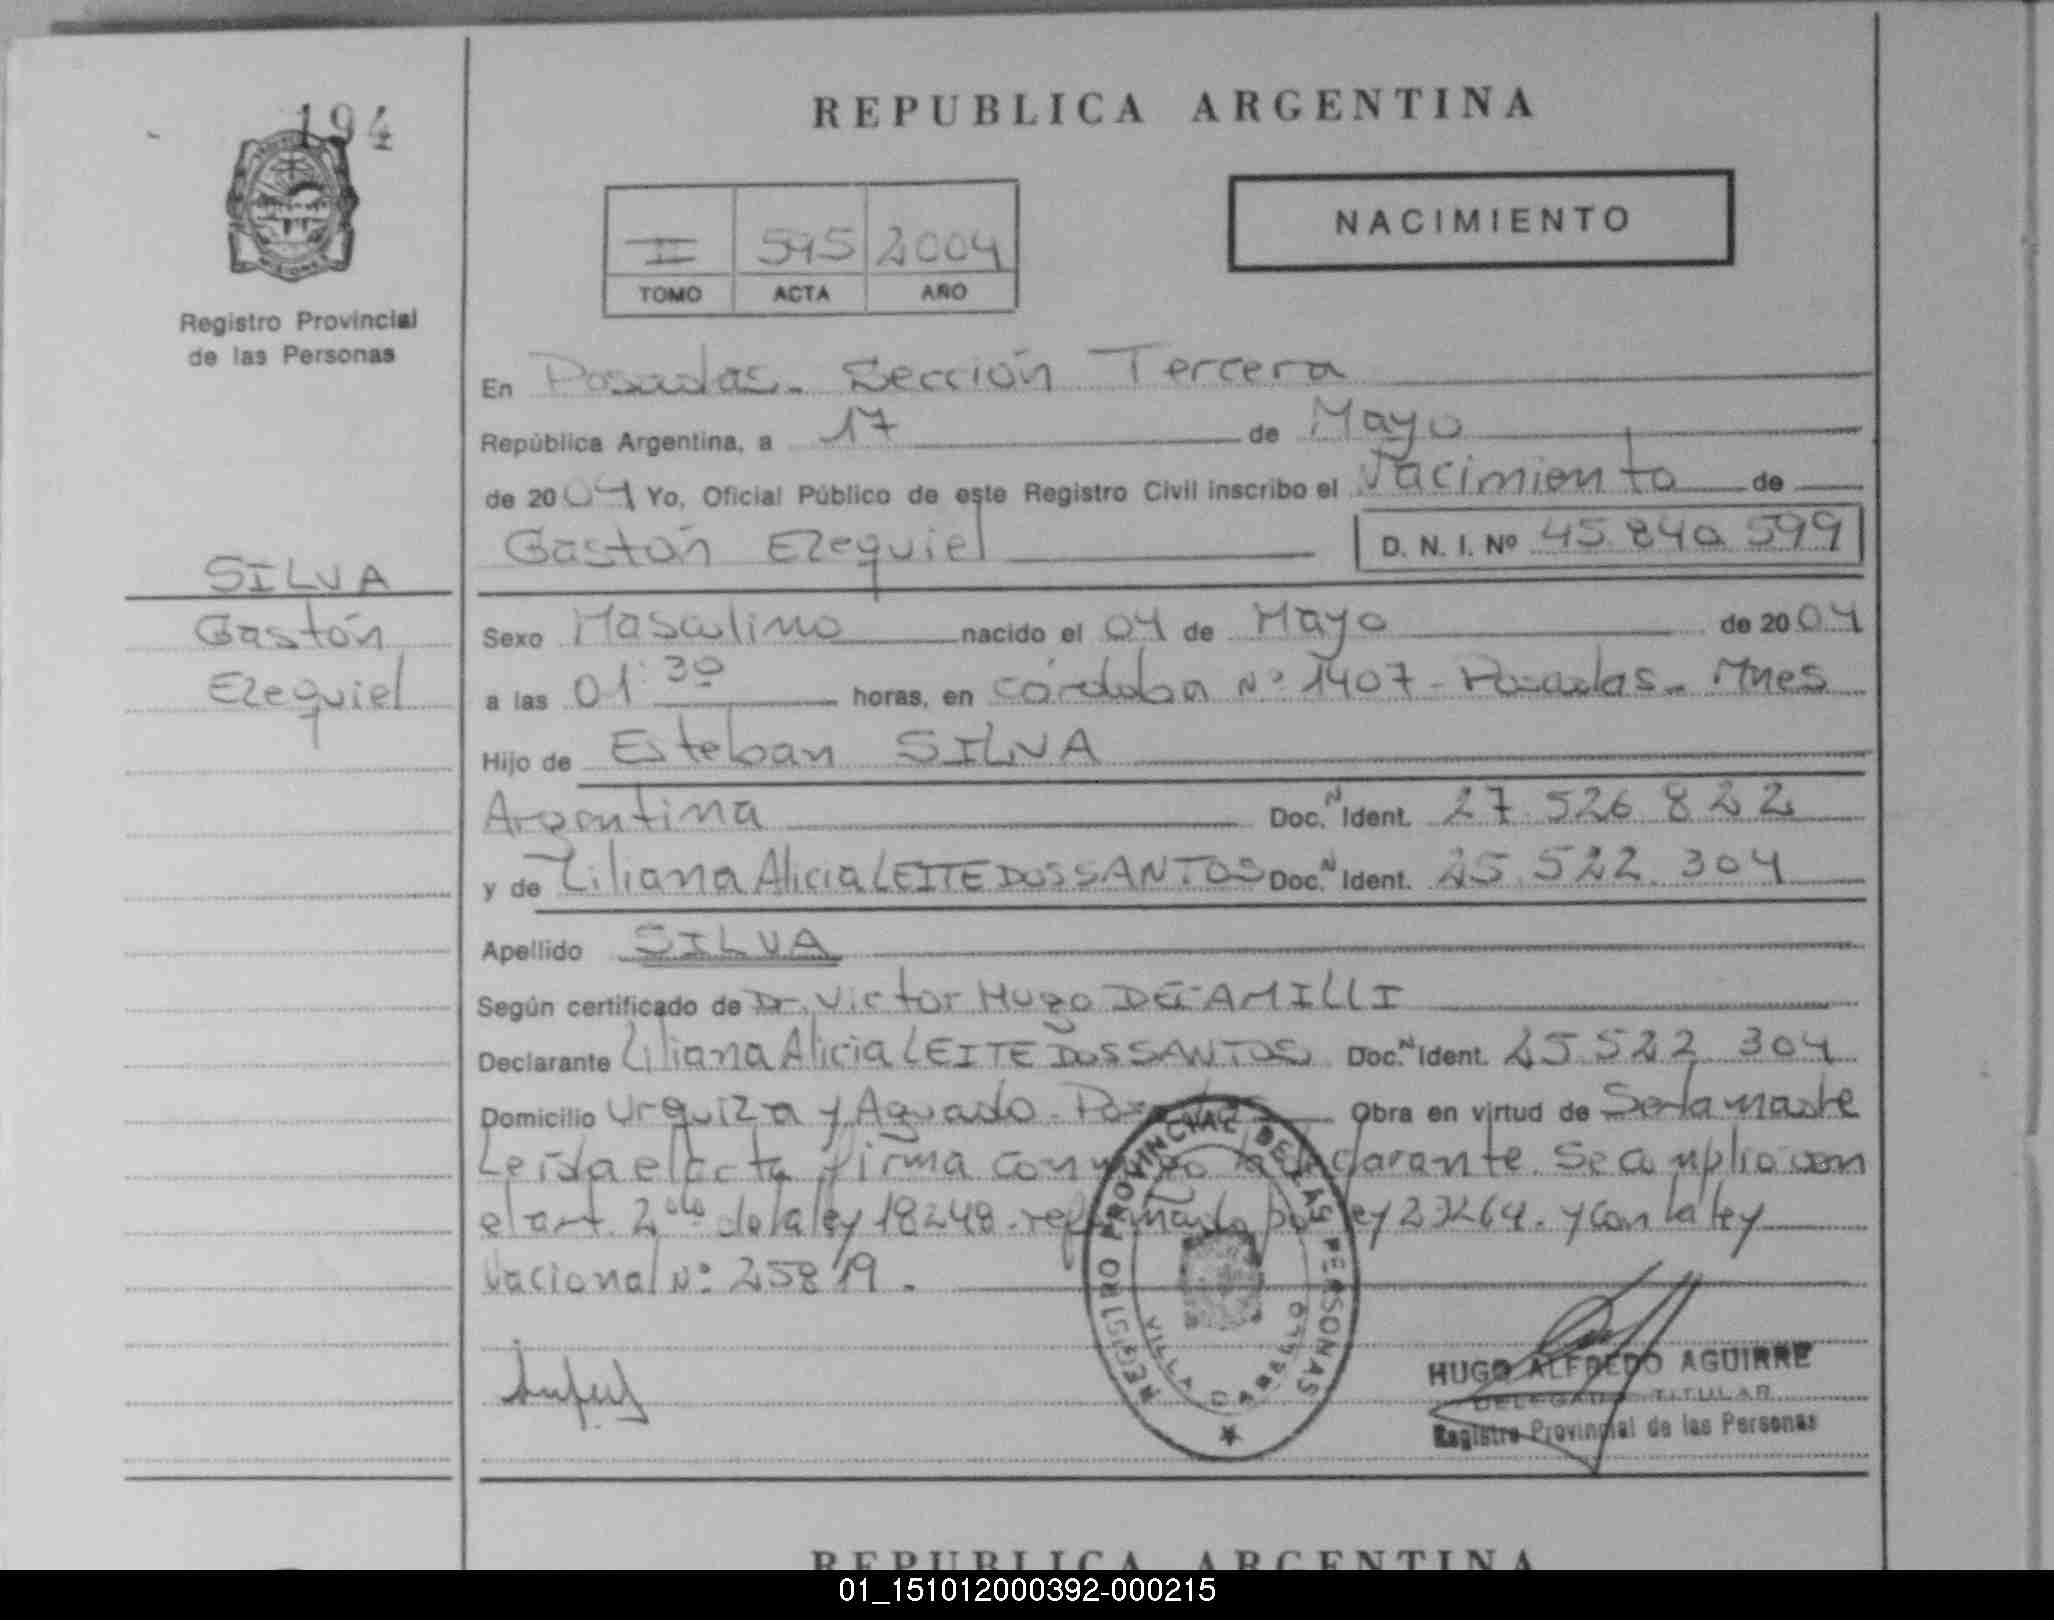 194
REPUBLICA ARGENTINA
NACIMIENTO
II 595 2004
TOMO ACTA AÑO
Registro Provincial
de las Personas
En Posadas - Sección Tercera
República Argentina, a 17 de Mayo
de 2004 Yo, Oficial Público de este Registro Civil inscribo el Nacimiento de
Gastón Ezequiel D. N. I. Nº 45.840.599
SILVA
Gastón
Ezequiel
Sexo Masculino nacido el 04 de Mayo de 2004
a las 01:30 horas, en Córdoba Nº 1407 - Posadas - Mnes
Hijo de Esteban SILVA
Argentina Doc. N Ident. 27.526.822
y de Liliana Alicia LEITE DOS SANTOS Doc. N Ident. 25.522.304
Apellido SILVA
Según certificado de Dr. Victor Hugo
Declarante Liliana Alicia LEITE DOS SANTOS Doc. N Ident. 25.522.304
Domicilio Urquiza y Aguado - Obra en virtud de Ser la madre
Leída el acta firma conmigo la declarante. Se cumplio con
el art. 2do de la ley 18248 - reformado por ley 23264. y con la ley
Nacional Nº 25819.
REGISTRO PROVINCIAL DE LAS PERSONAS
VILLA CABELLO
HUGO ALFREDO AGUIRRE
DELEGADO TITULAR
Registro Provincial de las Personas
REPUBLICA ARGENTINA
01_151012000392-000215